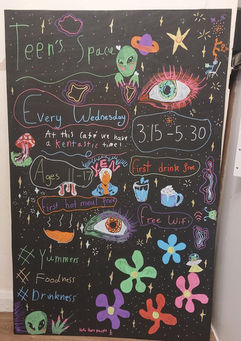 Teen's Space
Every Wednesday
3:15-5.30
At this café we have
a kentastic time!
Ages 11-17
First drink free
First hot meal free
Free WiFi
# Yummers
# Foodness
# Drinkness